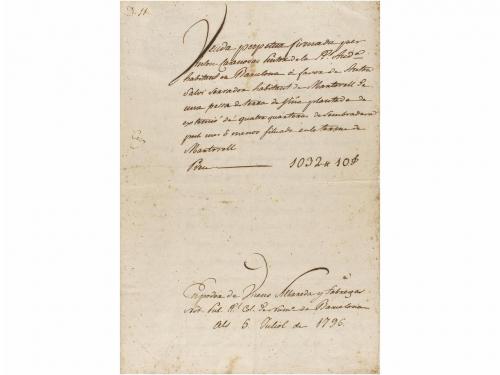 Venda perpetua firmada per
Anton Casanovas
habitant en Barcelona à favor de Anton
Salvi Serrador habitant de Martorell de
una pessa de terra de viña plantada de
extensió de quatre quarteras de sembradura
poch mes ó menos situada en lo terme de
Martorell
Preu 1032 ₶ 10 ş
En poder de Albareda y Fàbregas
Not. Pub. Rl. Col. de Num. de Barcelona
Als 6 Juliol de 1796.